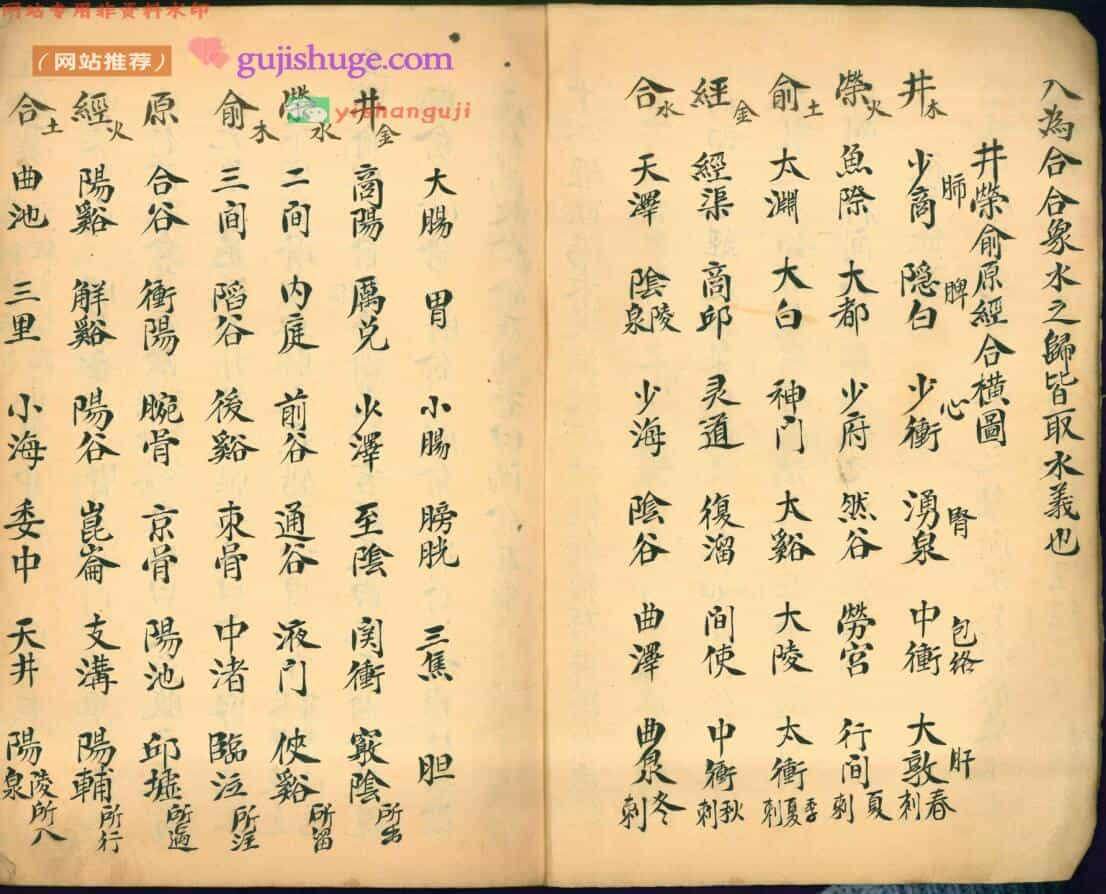 网站专用非资料水印
（网站推荐）
gujishuge.com
yishanguji
入為合合象水之歸皆取水義也
井滎俞原經合橫圖
肺 脾 心 腎 包络 肝
井木 少商 隐白 少衝 湧泉 中衝 大敦 春刺
滎火 魚際 大都 少府 然谷 勞宮 行间 夏刺
俞土 太淵 大白 神门 大谿 大陵 太衝 季夏刺
經金 經渠 商邱 灵道 復溜 间使 中衝 秋刺
合水 天澤 陰陵泉 少海 陰谷 曲澤 曲泉 冬刺
大腸 胃 小腸 膀胱 三焦 胆
井金 商陽 厲兑 少澤 至陰 関衝 竅陰 所出
滎水 二间 内庭 前谷 通谷 液门 侠谿 所留
俞木 三间 陷谷 後谿 束骨 中渚 臨泣 所注
原 合谷 衝陽 腕骨 京骨 陽池 邱墟 所過
經火 陽谿 解谿 陽谷 崑崙 支溝 陽輔 所行
合土 曲池 三里 小海 委中 天井 陽陵泉 所入